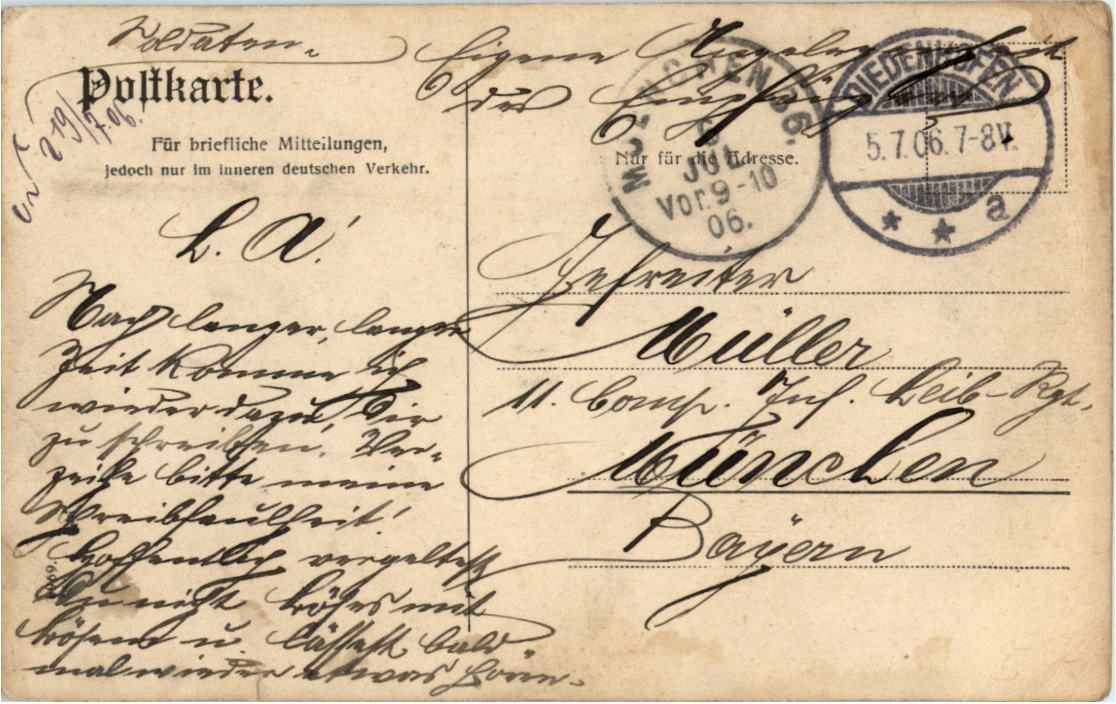 Soldaten-
Postkarte.
Eigene Angelegenheit
des Empfängers
Für briefliche Mitteilungen,
jedoch nur im inneren deutschen Verkehr.
Nur für die Adresse.
MUENCHEN 36.
6 JUL
Vor. 9-10
06.
DIEDENHOFEN
5.7.06. 7-8V.
* * a
219/
7.06.
L. A!
Nach langer, langer
Zeit komme ich
wieder dazu, Dir
zu schreiben. Ver-
zeihe bitte meine
Schreibfaulheit!
Hoffentlich vergeltest
Du nicht böses mit
bösem u. lässest bald
mal wieder etwas hören.
Gefreiter
Müller
11. Comp. Inf. Leib-Rgt.
München
Bayern